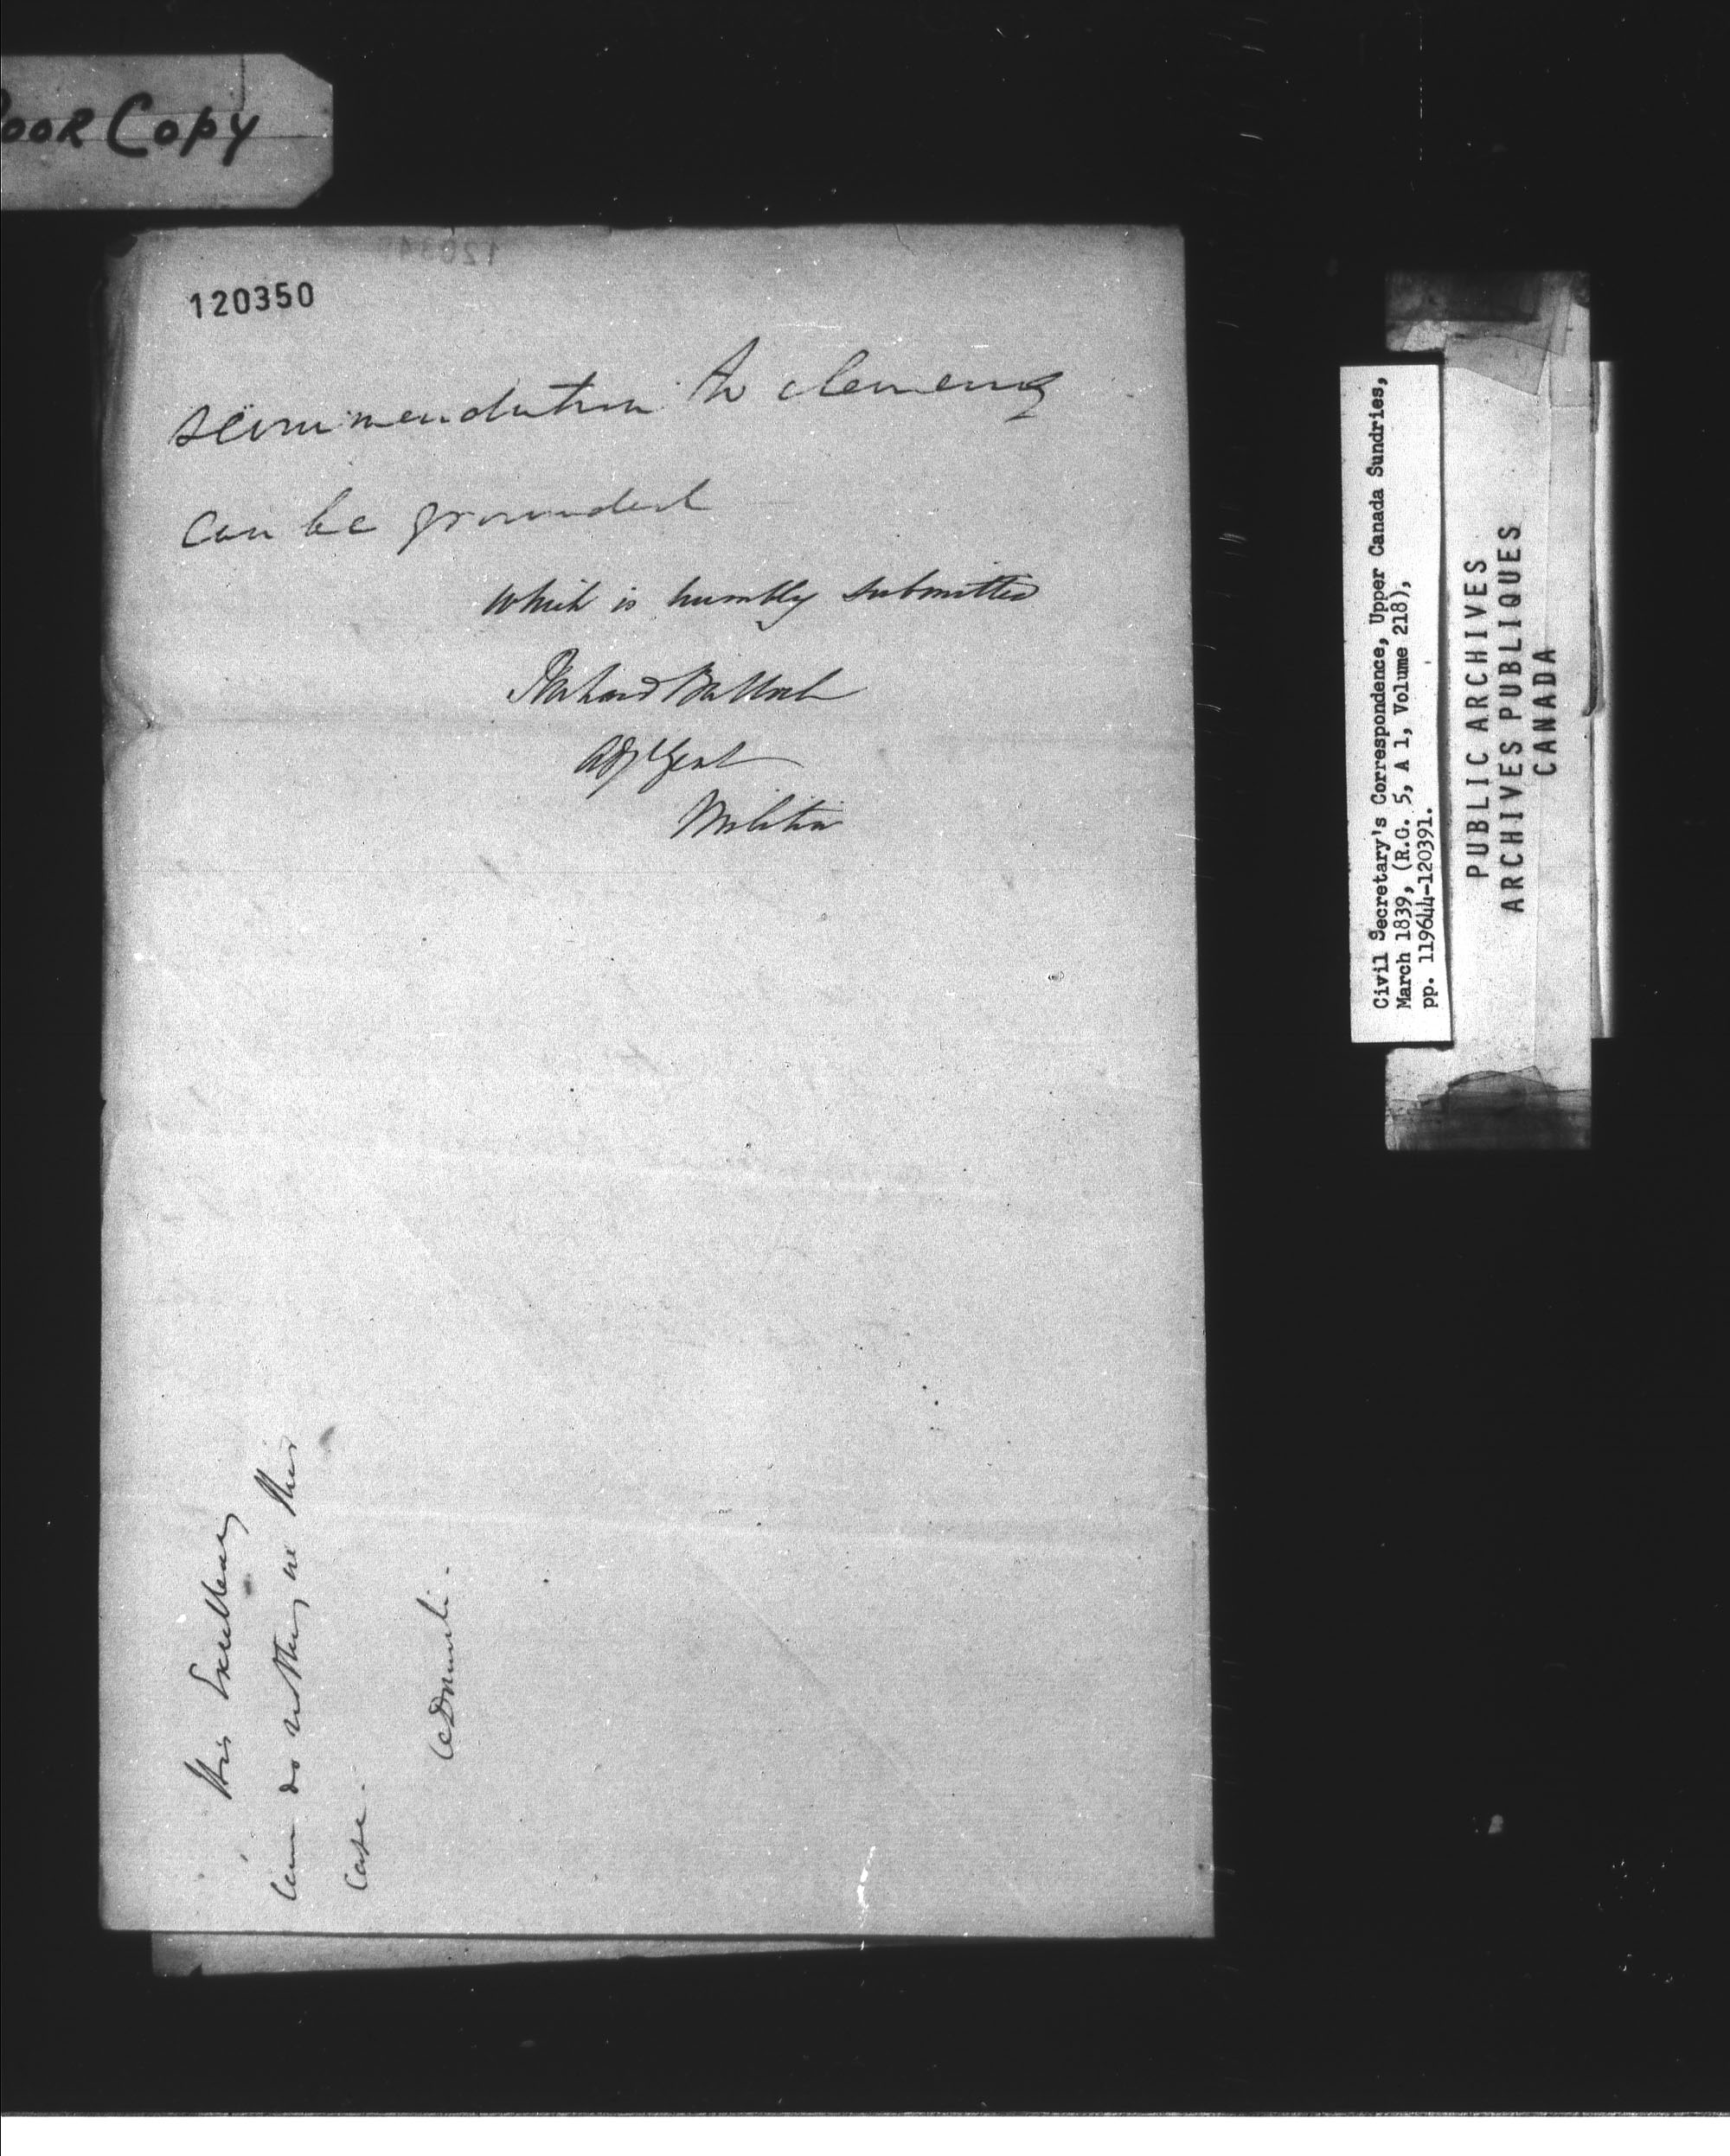 Poor Copy
120350
recommendation to clemency
can be grounded
which is humbly submitted
Richard Bullock
Adjt Genl
Militia
His Excellency
can do nothing in this
case.
Civil Secretary's Correspondence, Upper Canada Sundries,
March 1839, (R.G. 5, A 1, Volume 218),
pp. 119644-120391.
PUBLIC ARCHIVES
ARCHIVES PUBLIQUES
CANADA